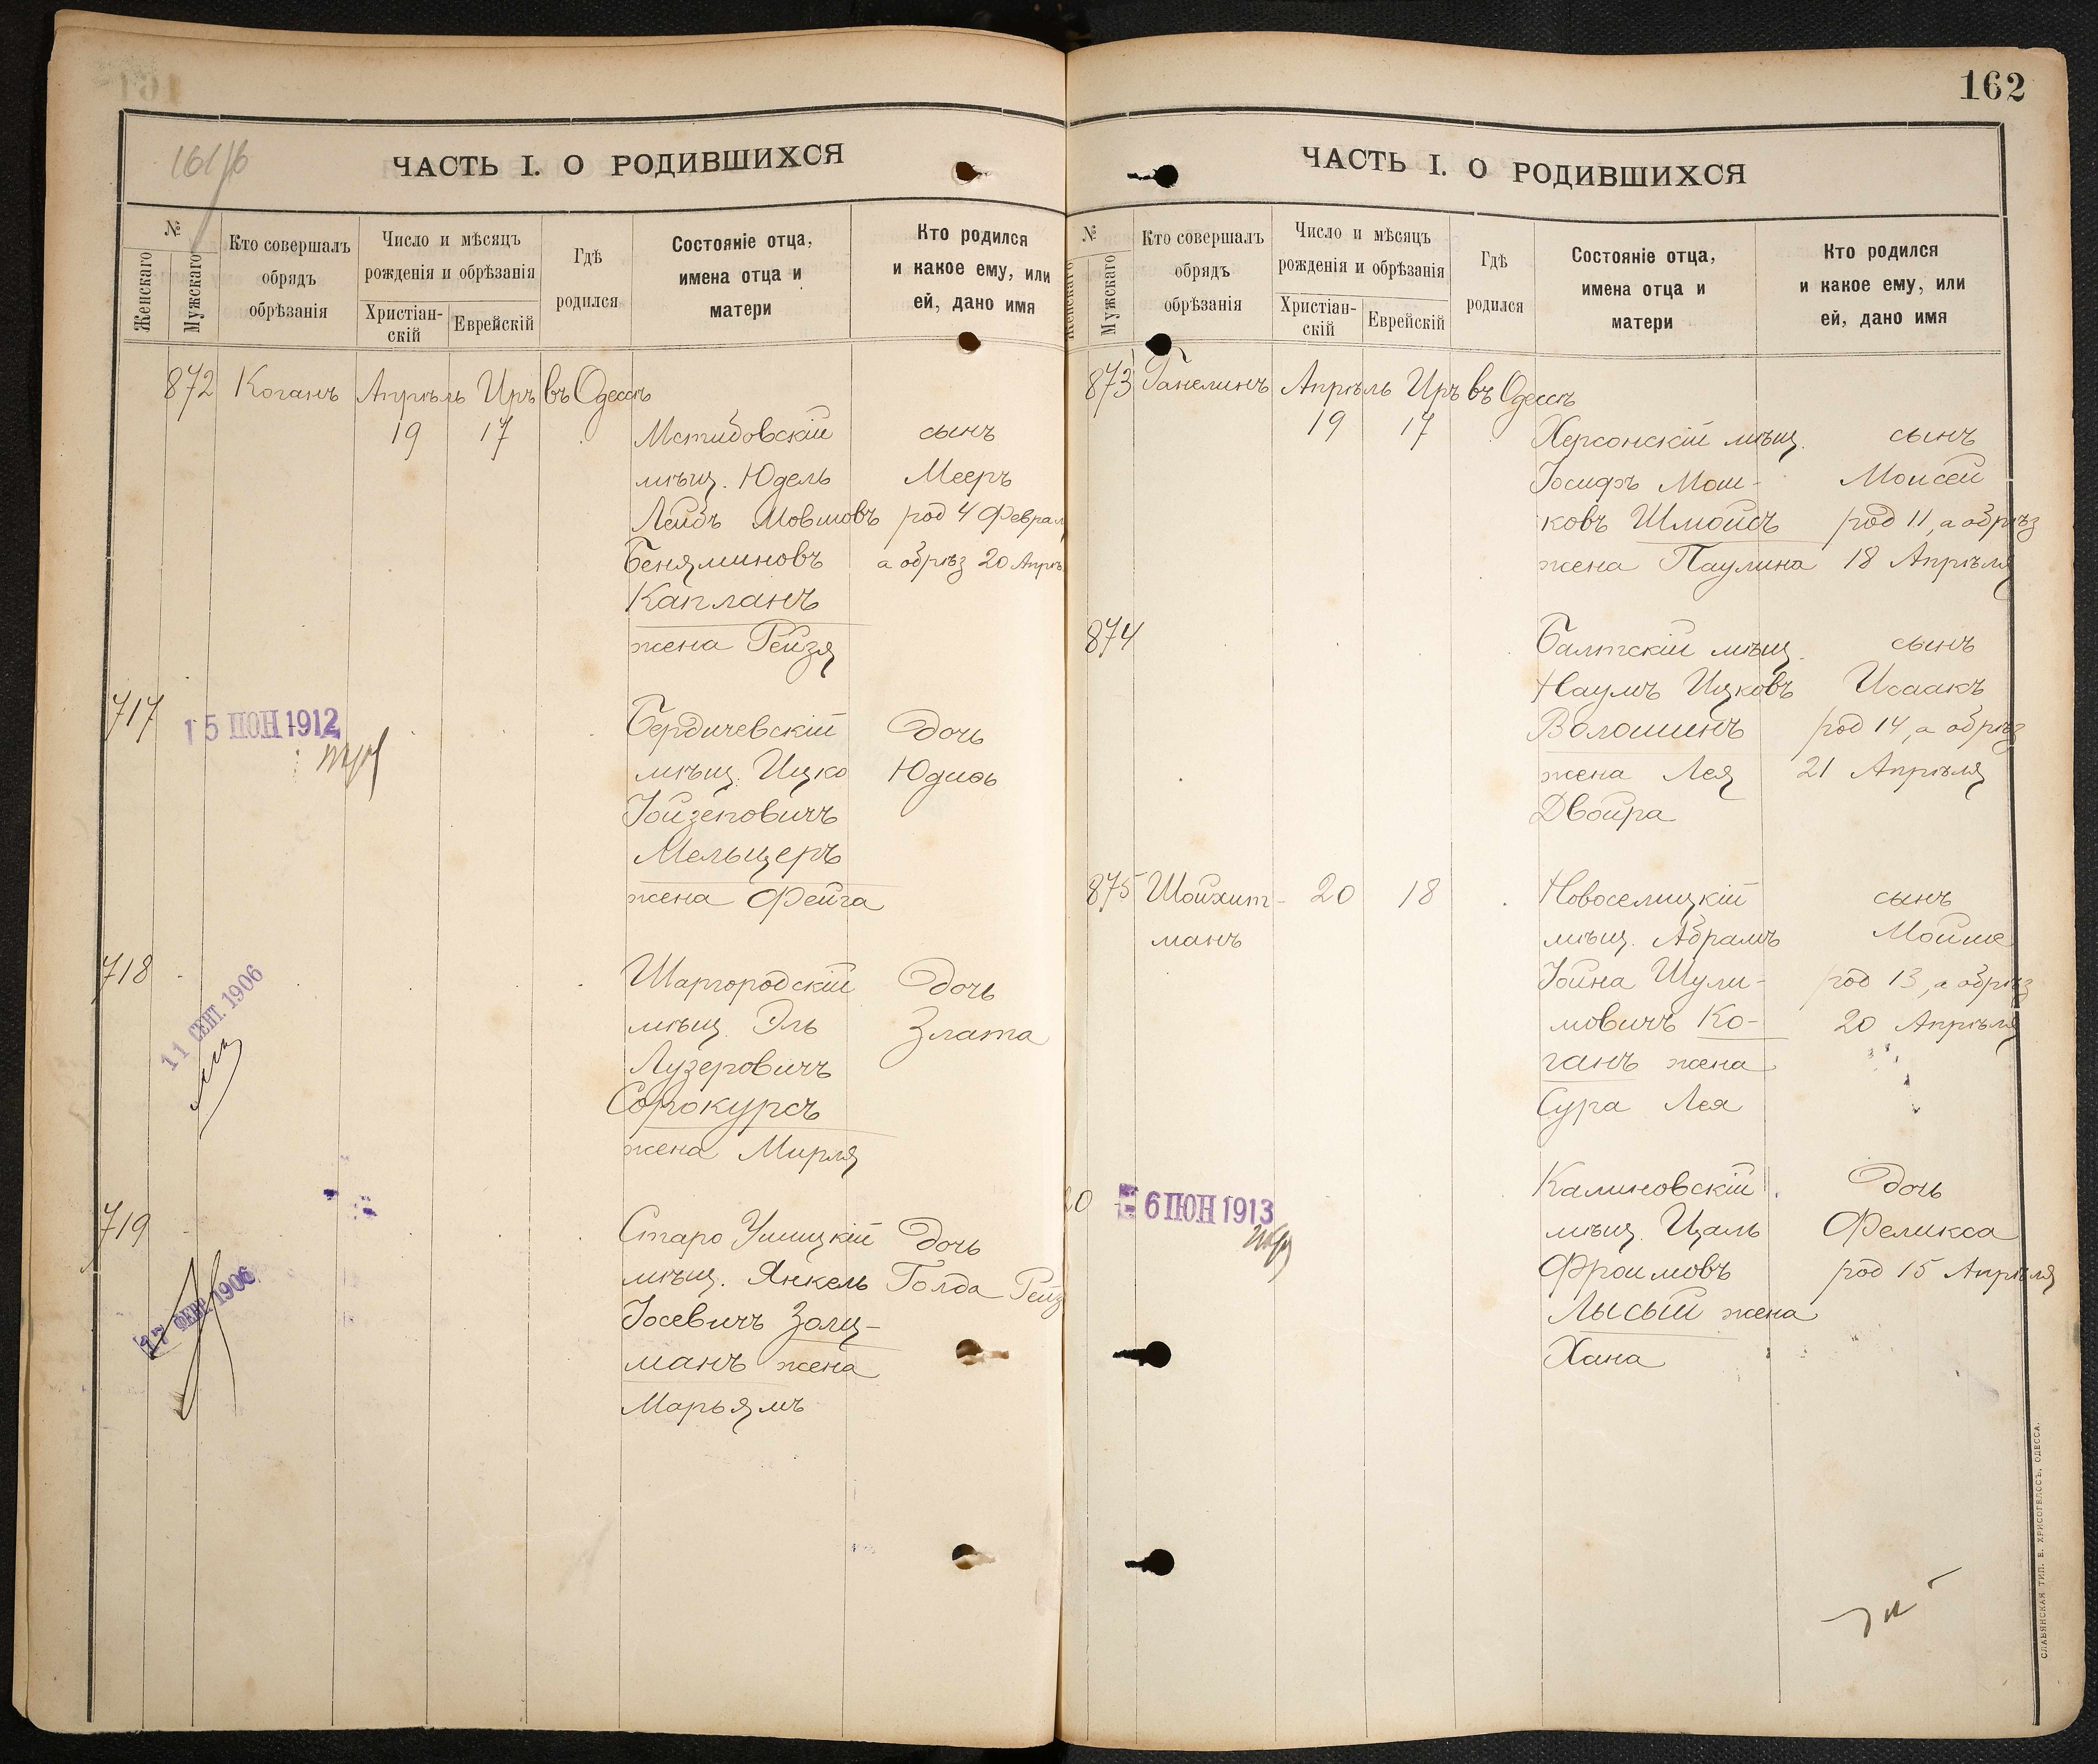 161/б
ЧАСТЬ I. О РОДИВШИХСЯ
№
Женскаго
Мужскаго
Кто совершалъ
обрядъ
обрѣзанія
Число и мѣсяцъ
рожденія и обрѣзанія
Христіан-
скій
Еврейскій
Гдѣ
родился
Состояніе отца,
имена отца и
матери
Кто родился
и какое ему, или
ей, дано имя
872 Коганъ Апрѣль Иръ въ Одессѣ
19 17 Мстибовскій сынъ
мѣщ. Юдель Мееръ
Лейбъ Мовшовъ род 4 Феврал
Беняминовъ а обрѣз 20 Апрѣ
Капланъ
жена Рейзя
717 15 ІЮН 1912 Бердичевскій Дочь
мѣщ. Ицко Юдиѳь
Іойзеповичъ
Мельцеръ
жена Фейга
718 Шаргородскій Дочь
11 СЕНТ. 1906 мѣщ. Эль Злата
Лузеровичъ
Сорокурсъ
жена Мирля
719 Старо Ушицкій Дочь
17 ФЕВР. 1906 мѣщ. Янкель Голда Рейз
Іосевичъ Золц-
манъ жена
Марьямъ
162
ЧАСТЬ I. О РОДИВШИХСЯ
№
Женскаго
Мужскаго
Кто совершалъ
обрядъ
обрѣзанія
Число и мѣсяцъ
рожденія и обрѣзанія
Христіан-
скій
Еврейскій
Гдѣ
родился
Состояніе отца,
имена отца и
матери
Кто родился
и какое ему, или
ей, дано имя
873 Ганелинъ Апрѣль Иръ въ Одессѣ
19 17 Херсонскій мѣщ. сынъ
Іосифъ Мош- Моисей
ковъ Шмойсъ род 11, а обрѣз
жена Паулина 18 Апрѣля
874 Балтскій мѣщ. сынъ
Наумъ Ицковъ Исаакъ
Волошинъ род 14, а обрѣз
жена Лея 21 Апрѣля
Двойра
875 Шойхит- 20 18 Новоселицкій сынъ
манъ мѣщ. Абрамъ Мойше
Іойна Шули- род 13, а обрѣз
мовичъ Ко- 20 Апрѣля
ганъ жена
Сура Лея
0 6 ІЮН 1913 Калиновскій Дочь
мѣщ. Цаль Феликса
Фроимовъ род 15 Апрѣля
Лысый жена
Хана
СЛАВЯНСКАЯ ТИП. Е. ХРИСОГЕЛОСЪ, ОДЕССА.